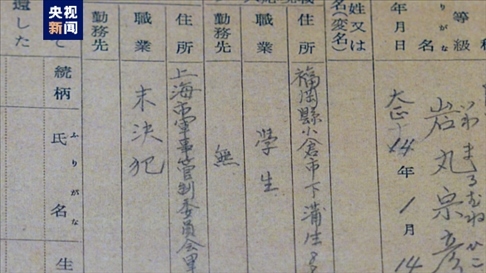 央视新闻
等級
名
岩丸宗彦
年月日
大正14年1月14
姓又は
名(変名)
住所
福岡縣小倉市下蒲生
職業
学生
勤務先
無
住所
上海市軍事管制委員会軍
職業
未決犯
勤務先
続柄
氏名
ふりがな
生
遺した